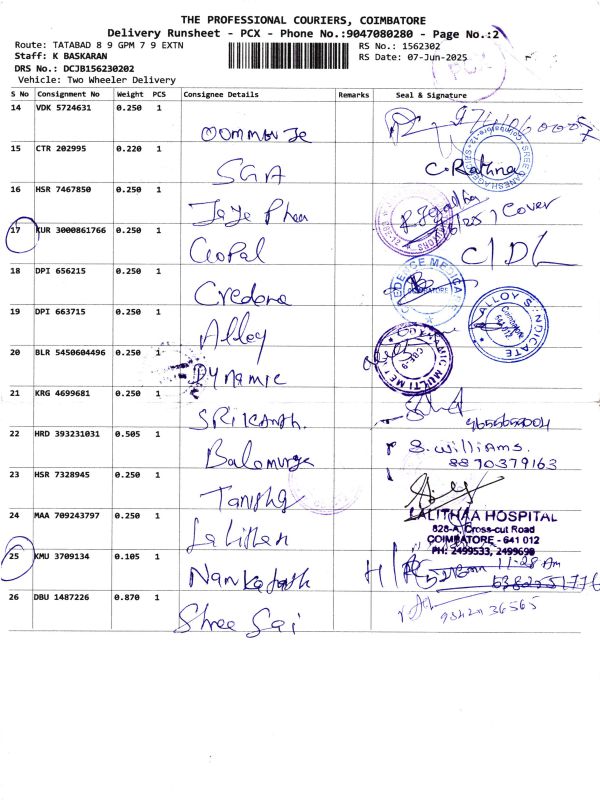 THE PROFESSIONAL COURIERS, COIMBATORE
Delivery Runsheet - PCX - Phone No.:9047080280 - Page No.:2
Route: TATABAD 8 9 GPM 7 9 EXTN
RS No.: 1562302
Staff: K BASKARAN
RS Date: 07-Jun-2025
DRS No.: DCJB156230202
Vehicle: Two Wheeler Delivery
S No Consignment No Weight PCS Consignee Details Remarks Seal & Signature
14 VDK 5724631 0.250 1
15 CTR 202995 0.220 1 SGA C. Rathna
16 HSR 7467850 0.250 1 Cover
17 KUR 3000861766 0.250 1 Gopal C/DL
18 DPI 656215 0.250 1 Credene
19 DPI 663715 0.250 1 Alloy
ALLOY SYNDICATE
20 BLR 5450604496 0.250 1 Dynamic
21 KRG 4699681 0.250 1 SRIKANTH.
22 HRD 393231031 0.505 1 S. Williams.
8870379163
23 HSR 7328945 0.250 1 Tanishq
24 MAA 709243797 0.250 1
LALITHAA HOSPITAL
828-A, Cross-cut Road
COIMBATORE - 641 012
PH: 2499533, 2499690
25 KMU 3709134 0.105 1 11-28 Am
26 DBU 1487226 0.870 1 Shree Sai